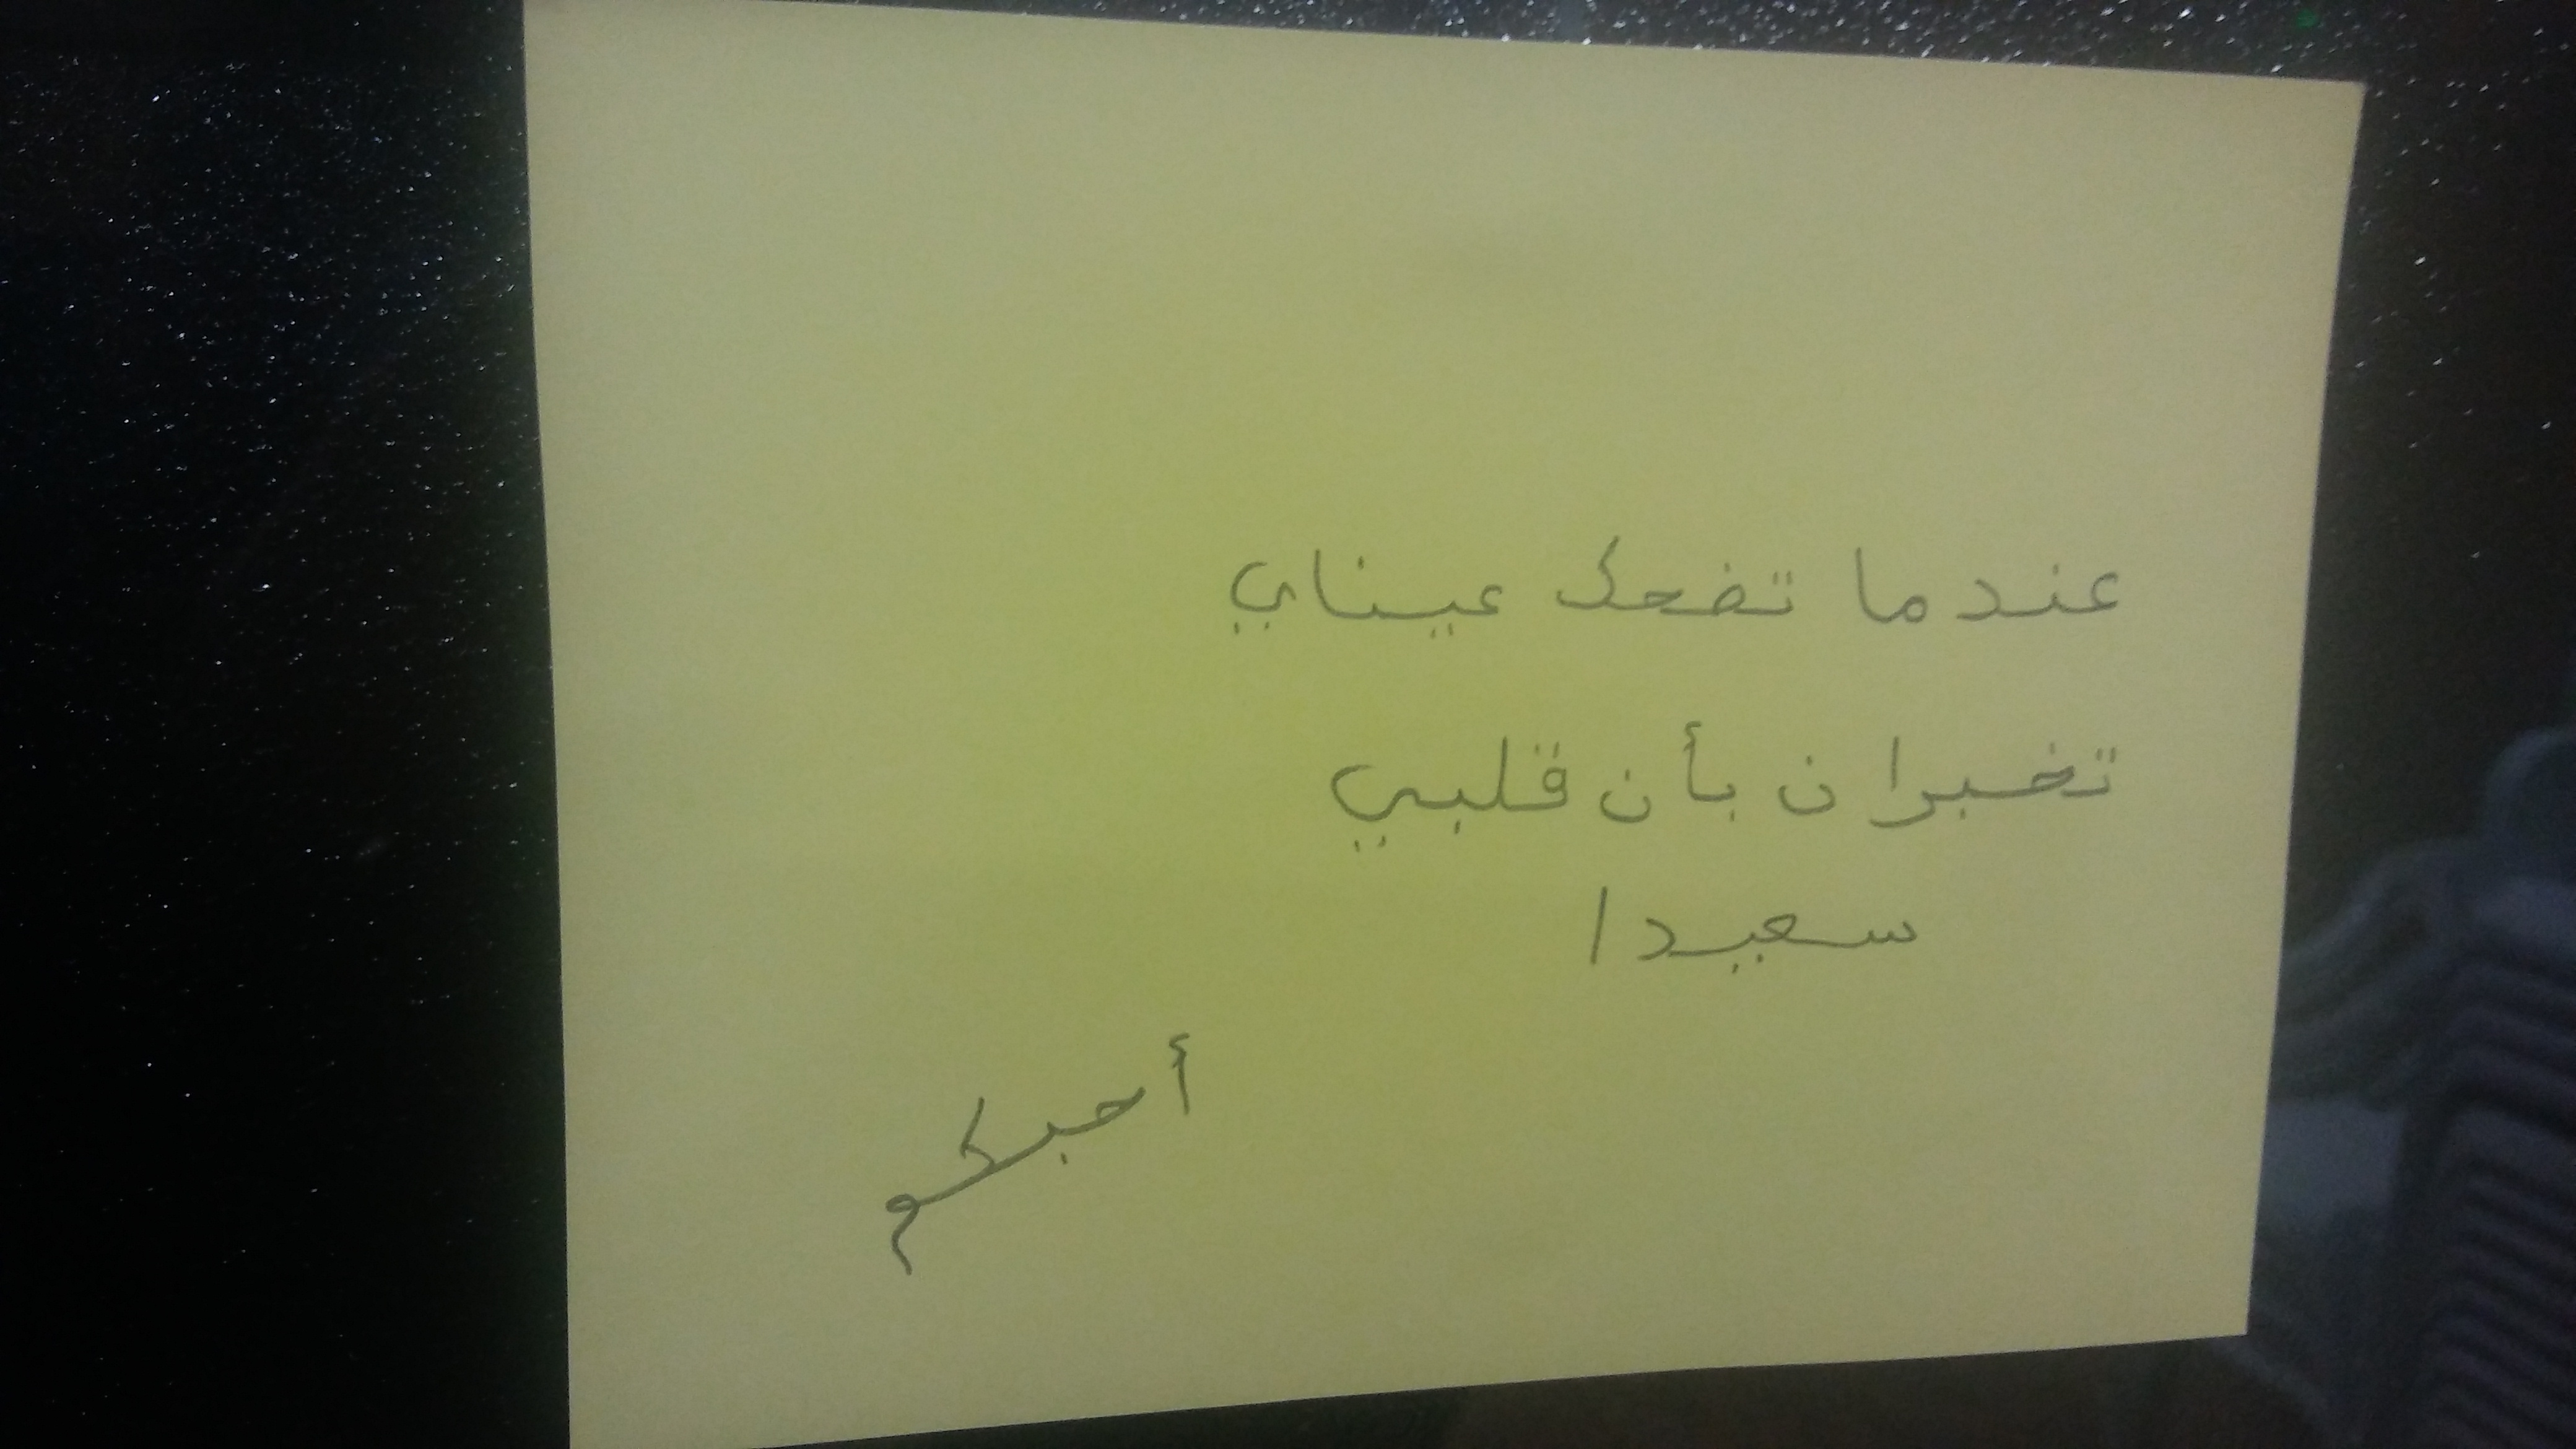 عندما تضحك عيناي
تخبران بأن قلبي
سعيدا
أحبكم